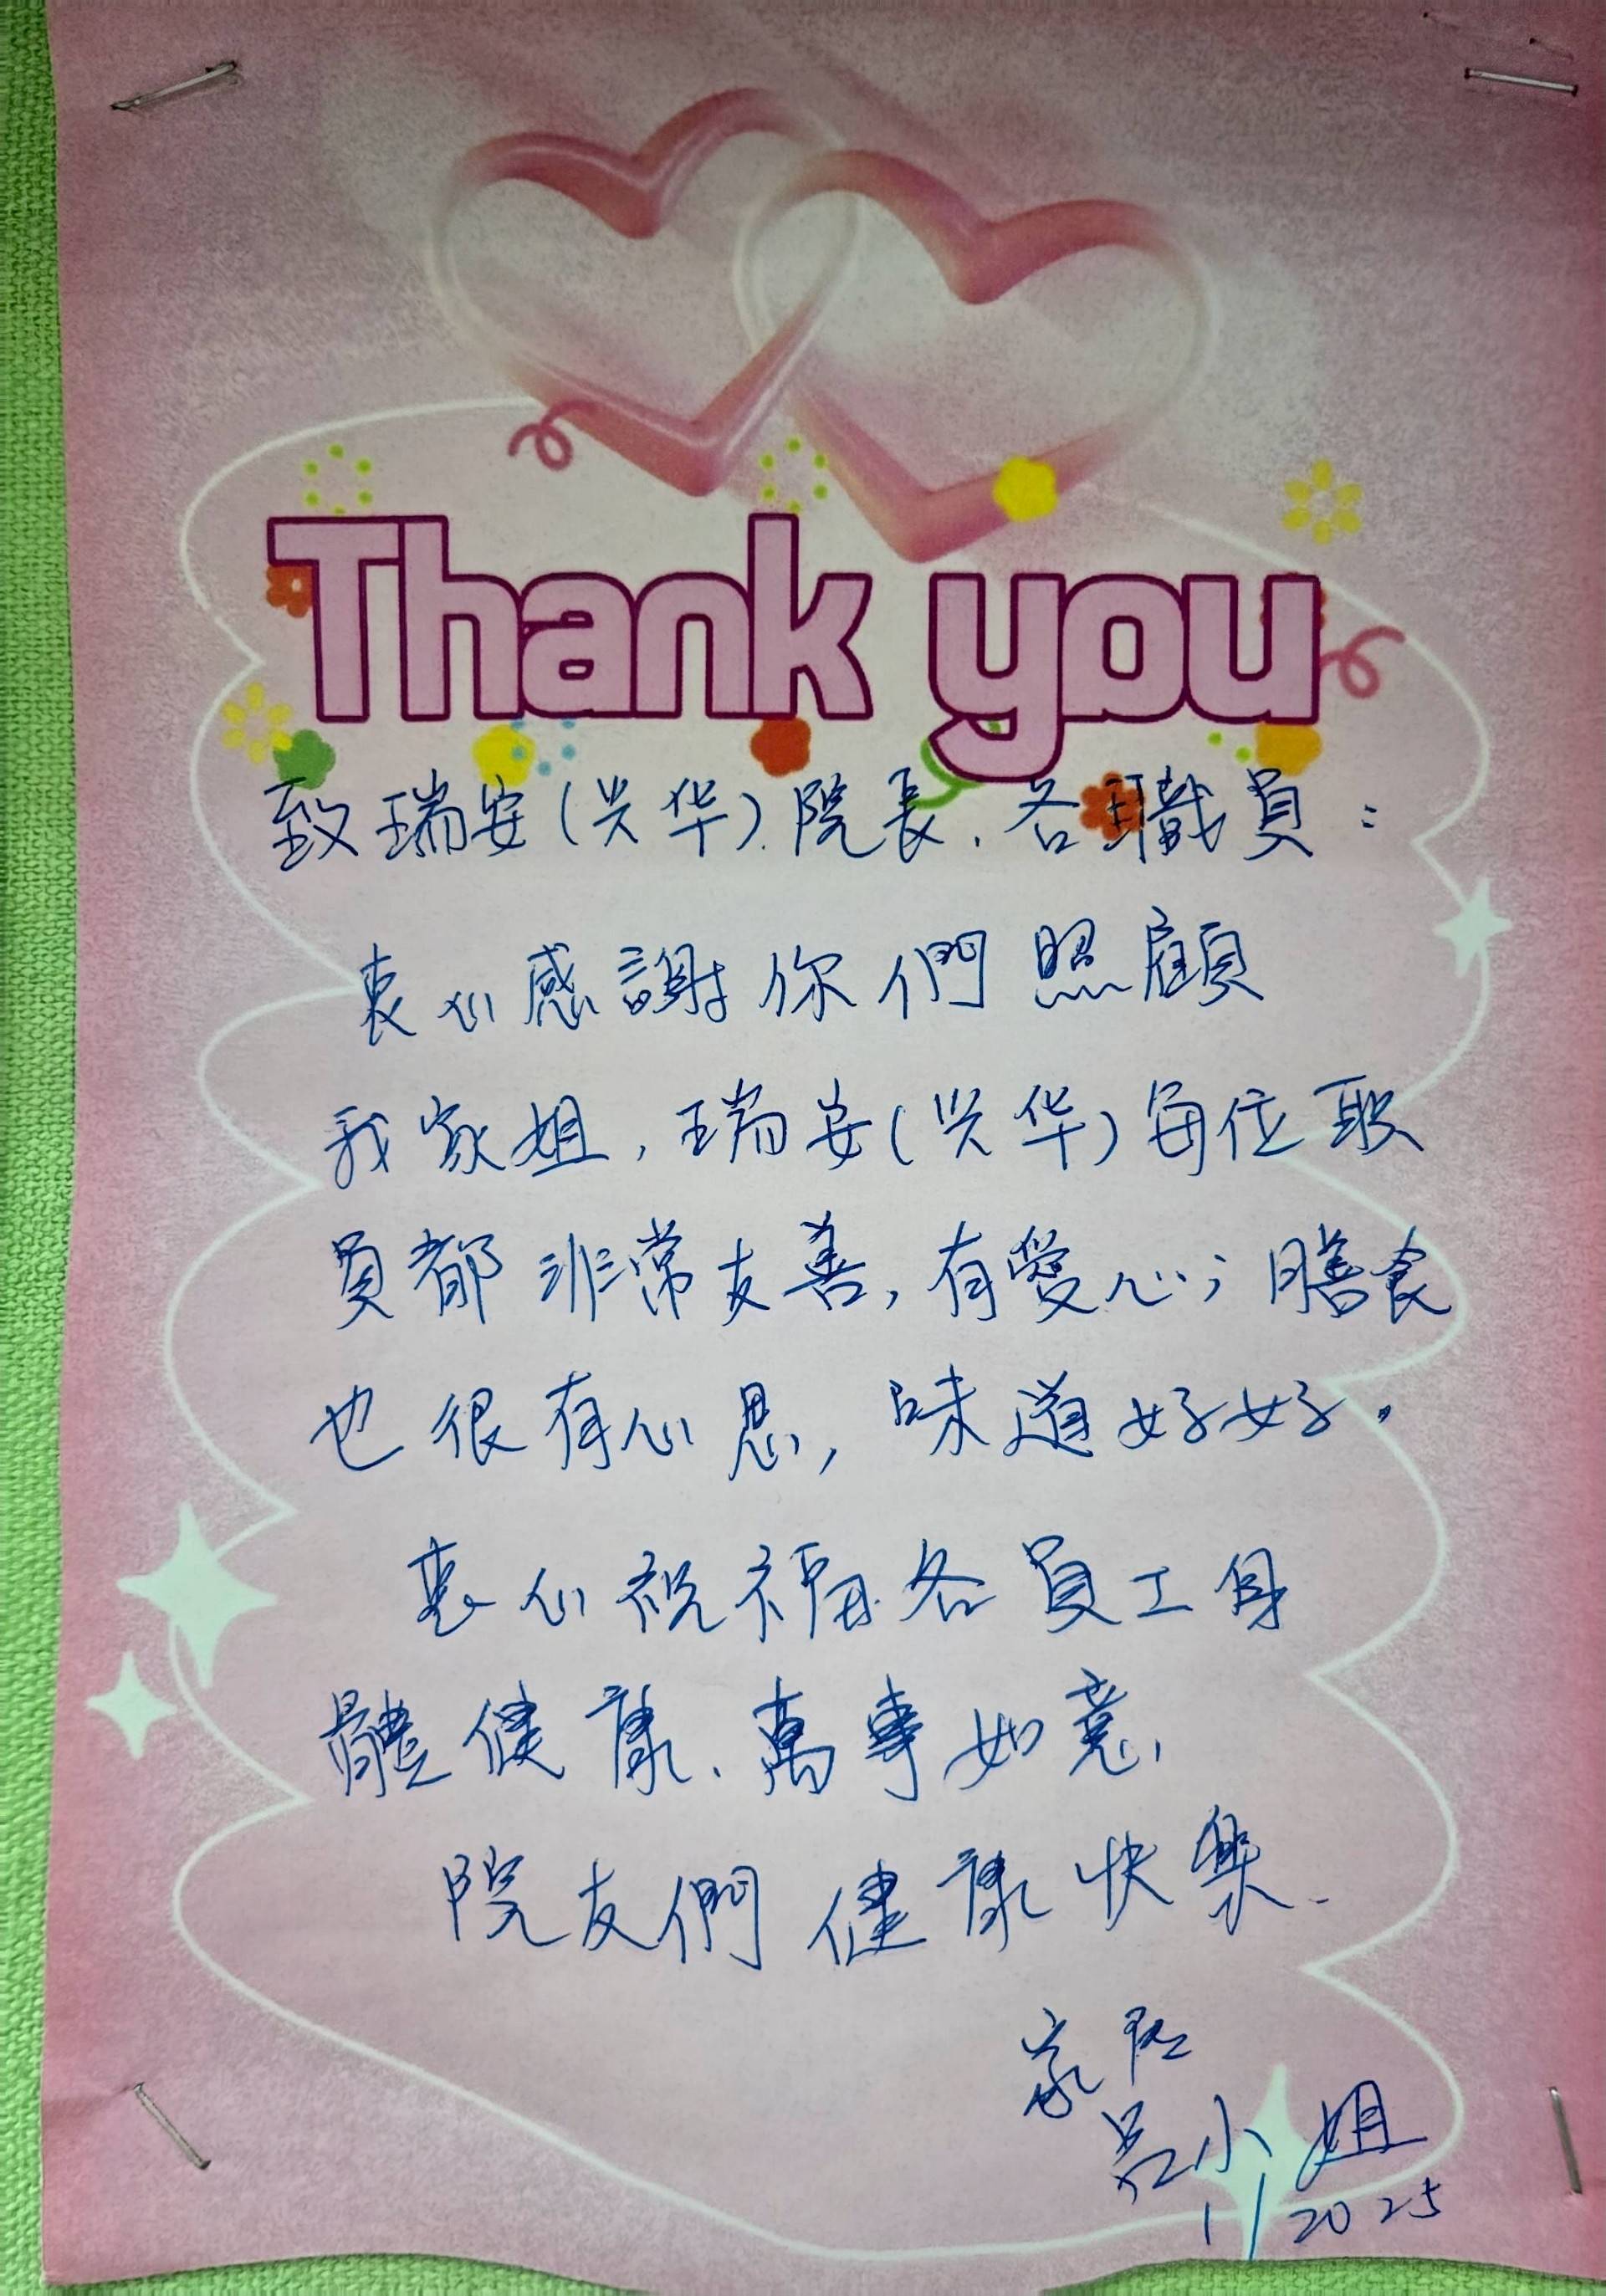 Thank you
致瑞安(兴华)院長、各職員：
衷心感謝你們照顧
我家姐，瑞安(兴华)每位职
員都非常友善，有愛心；膳食
也很有心思，味道好好。
衷心祝福各員工身
體健康、萬事如意、
院友們健康快樂.
家属
吕小姐
1/1 2025